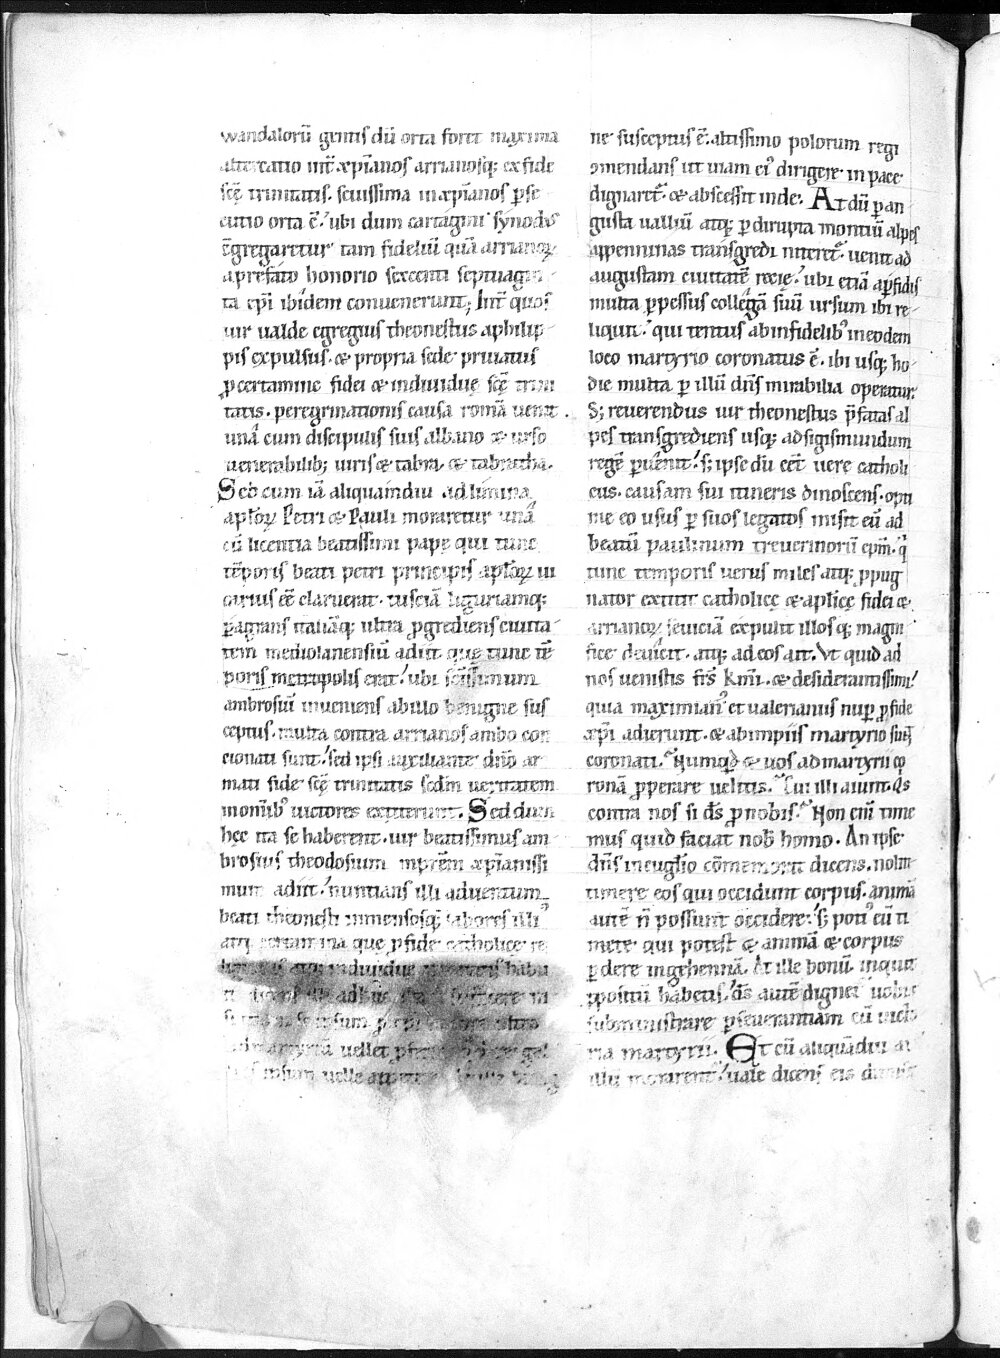 wandalorū gentis dū orta foret maxima
altercatio int̄ xp̄ianos arrianosq; ex fide
scē trinitatis. seuissima in xp̄ianos p̱se
cutio orta ē. ubi dum cartagini synodus
ēgregaretur tam fideliū quā arrianoꝝ
a prefato honorio sexcenti septuagin
ta ep̄i ibidem convenerunt; Int̄ quos
uir ualde egregius theonestus a philip
pis expulsus. & propria sede priuatus
ꝓ certamine fidei & indiuiduę scē trini
tatis. peregrinationis causa romā uenit.
unā cum discipulis suis albano & urso
uenerabilib; uiris & tabra. & tabratha.
Sed cum iā aliquandiu ad limina
aplōꝝ Petri & Pauli moraretur unā
cū licentia beatissimi pape qui tunc
tēporis beati petri principis aplōꝝ ui
carius eē claruerat. tusciā liguriamq;
p̱agrans italiāq; ultra ꝓgrediens ciuita
tem mediolanensiū adiit que tunc tē
poris metropolis erat. ubi scissimum
ambrosiū inueniens ab illo benigne sus
ceptus. multa contra arrianos ambo con
cionati sunt. sed ipsi auxiliante dn̄o ar
mati fide scē trinitatis scdm ueritatem
mom̄ib᾽ uictores extiterunt. Sed dum
hęc ita se haberent. uir beatissimus am
brosius theodosium inp̄rem xp̄ianissi
mum adiit. nuntians illi aduentum
beati theonesti inmensosq; labores illi᾽
atq; certamina que ꝓ fide catholice re
indiuidue habu
illi
ipsum
martyriū uellet
ipsum uelle
ne susceptus ē. altissimo polorum regi
ꝯmendans ut uiam ei᾽ dirigere in pace
dignaret᾽. & abscessit inde. At dū p̱ an
gusta ualliū atq; p̱ dirupta montiū alpes
appenninas transgredi niteret᾽. uenit ad
augustam ciuitatē recię. ubi etiā a p̱fidis
multa p̱pessus collegā suū ursum ibi re
liquit. qui tentus ab infidelib᾽ in eodem
loco martyrio coronatus ē. ibi usq; ho
die multa p̱ illū dn̄s mirabilia operatur.
S; reuerendus uir theonestus p̄fatas al
pes transgrediens usq; ad sigismundum
regē p̱uenit. s; ipse dū eēt uere catholi
cus. causam sui itineris dinoscens. opti
me eo usus p̱ suos legatos misit eū ad
beatū paulinum treuerinorū ep̄m. q̇
tunc temporis uerus miles atq; ꝓpug
nator extitit catholicę & aplicę fidei &
arrianoꝝ seuiciā expulit illosq; magni
fice deuicit. atq; ad eos ait. Vt quid ad
nos uenistis fr̄s km̄i. & desiderantissimi.
quia maximian᾽ et ualerianus nup̱ ꝓ fide
xp̄i adierunt. & ab impiis martyrio sunt
coronati. Numqd & uos ad martyrii co
ronā ꝓperare uelitis. Cui illi aiunt. qs
contra nos si ds̄ ꝓ nobis. Non eni time
mus quid faciat nob̄ homo. An ipse
dn̄s in euglio cōmemorat dicens. nolite
timere eos qui occidunt corpus. animā
autē n̄ possunt occidere. s; poti᾽ eū ti
mete qui potest & animā & corpus
p̱dere in gehennā. At ille bonū inquit
ꝓpositū habetis. ds̄ autē dignet᾽ uobis
subministrare p̱seuerantiam cū uicto
ria martyrii. Et cū aliquādiu ap
illū morarent᾽. uale dicens eis